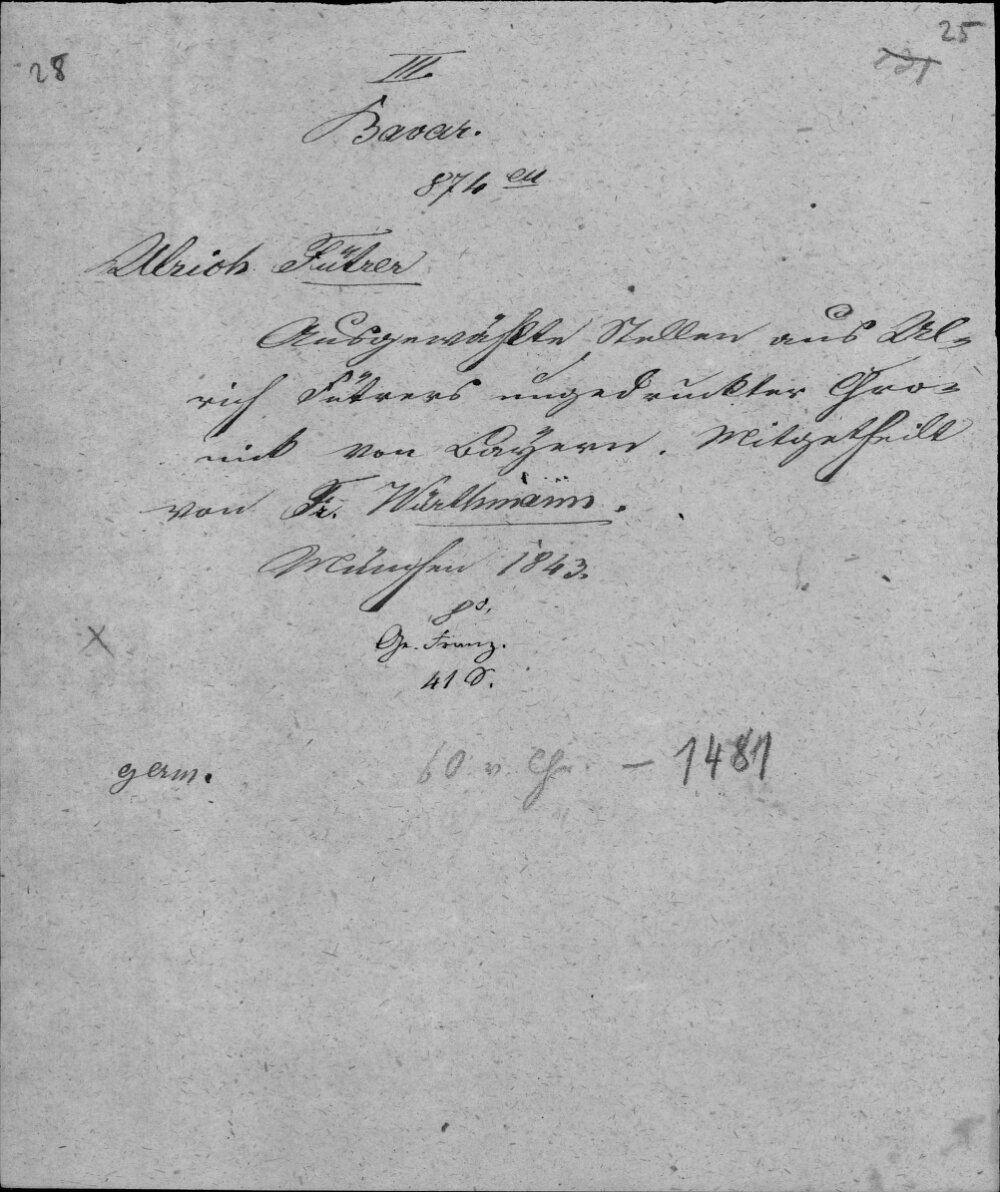 25
28
III.
Bavar.
874 cu
Ulrich Fütrer
Ausgewählte Stellen aus Ul-
rich Fütrers ungedruckter Chro-
nick von Bayern. Mitgetheilt
von Fr. Würthmann.
München 1843.
8º.
Ge. Franz.
41 S.
X
germ.
60 v. Chr. – 1481